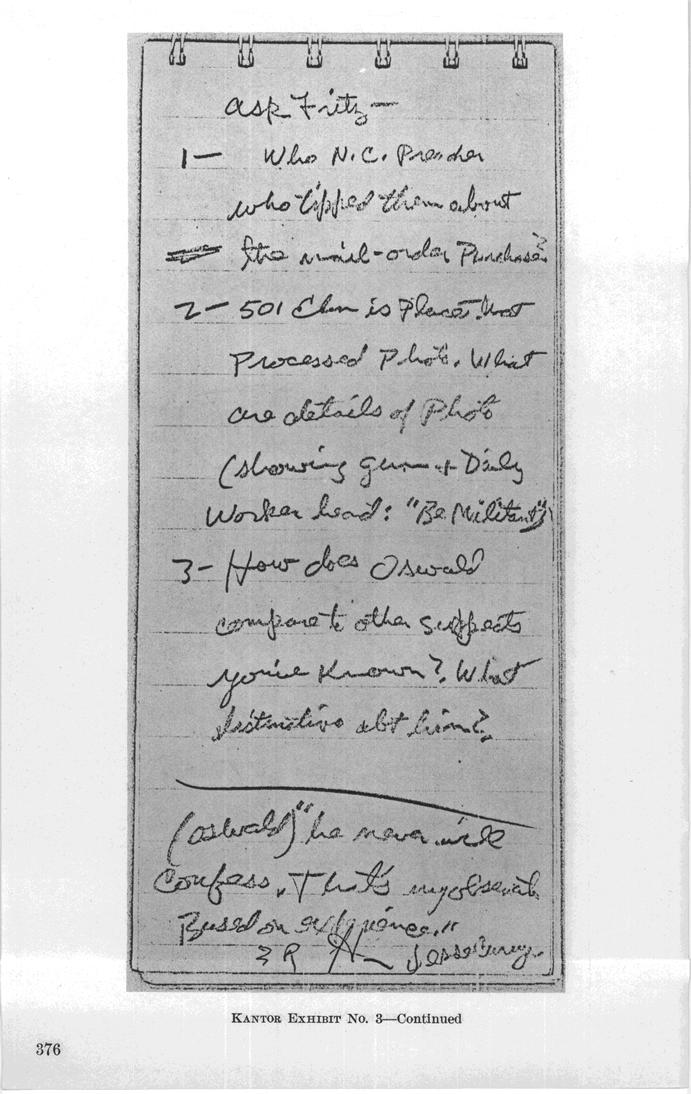 ask Fritz—
1— Who N.C. Preacher
who tipped them about
the mail-order Purchase?
2— 501 Elm is Place that
Processed Photo. What
are details of Photo
(showing gun & Daily
Worker head: "Be Militant")
3- How does Oswald
compare to other suspects
you've Known? What
distinctive abt him?
(oswald) "he never will
Confess. That's my
Based on experience."
Jesse Curry
KANTOR EXHIBIT No. 3—Continued
376